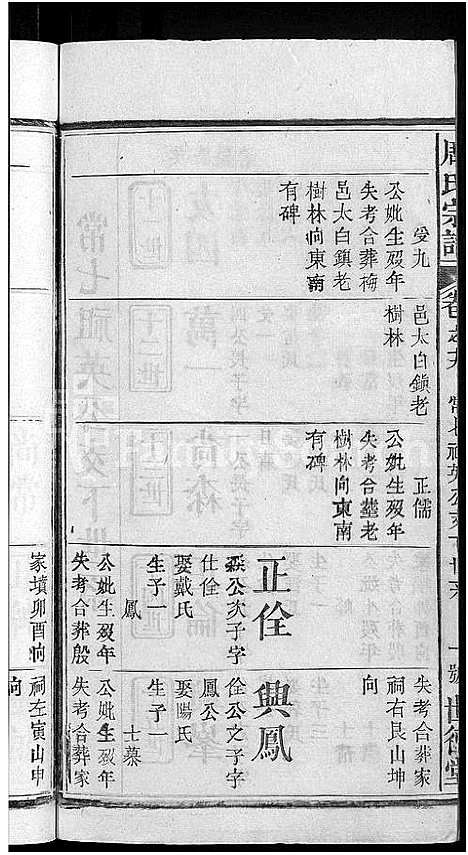 周氏宗譜
卷之九
常七祖英公
世德堂
受九
公妣生歿年
失考合葬梅
邑太白鎮老
樹林向東南
有碑
邑太白鎮老
樹林
正儒
公妣生歿年
失考合塟老
樹林向東南
有碑
正佺
森公次子字
仕佺
娶戴氏
生子一
鳳
公妣生歿年
失考合葬殷
家墳卯酉向
失考合葬家
祠右艮山坤
向
興鳳
佺公之子字
鳳公
娶陽氏
生子一
士慕
公妣生歿年
失考合葬家
祠左寅山申
向